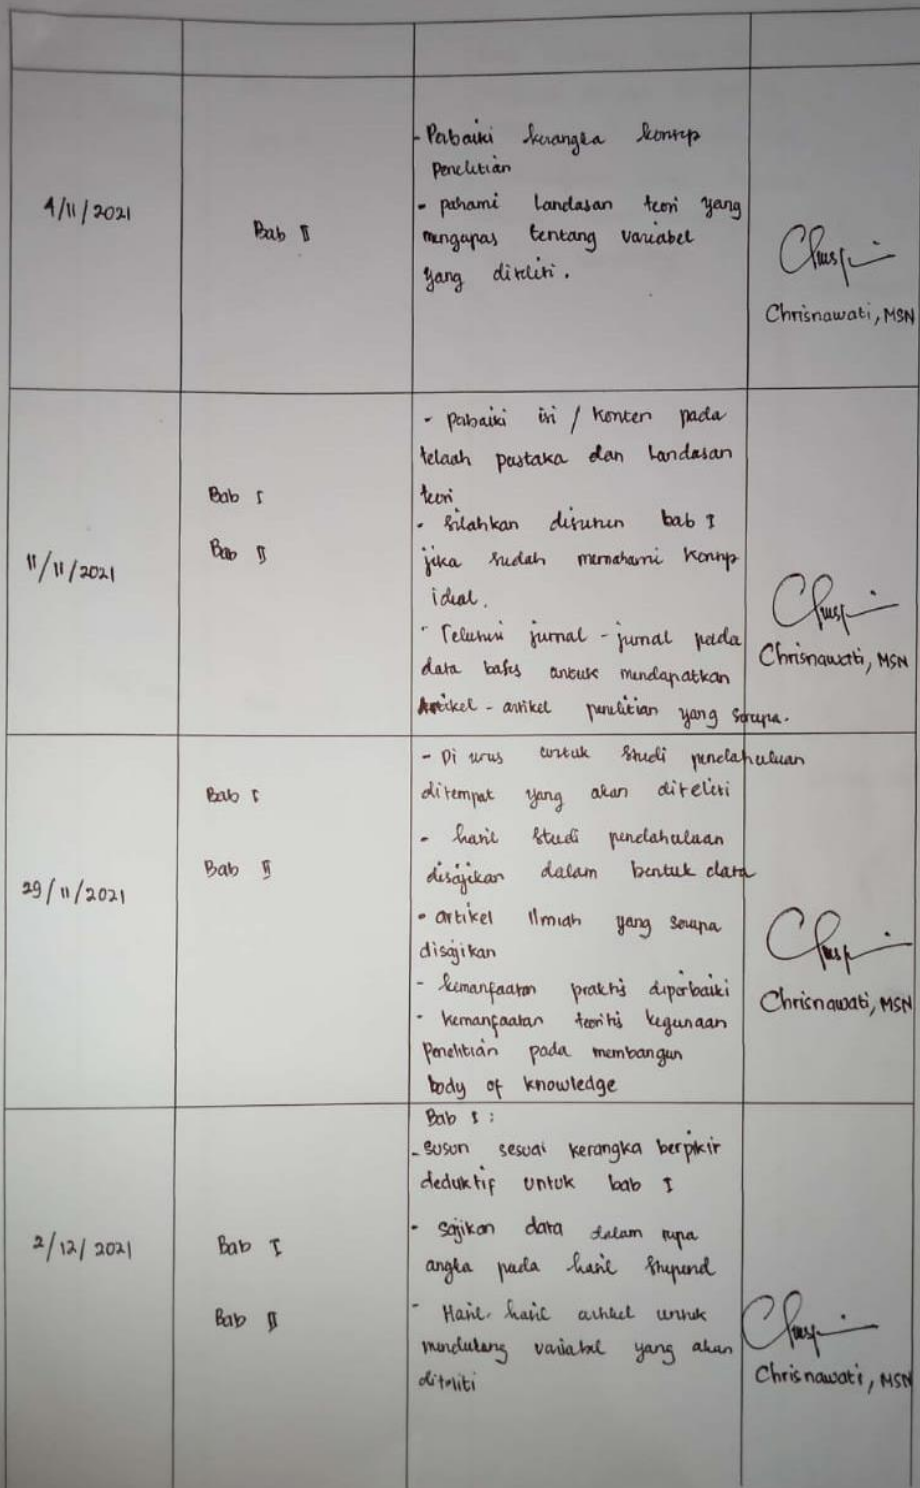 4/11/2021
Bab II
- Perbaiki kerangka konsep
penelitian
- pahami landasan teori yang
mengupas tentang variabel
yang diteliti.
Chrisnawati, MSN
11/11/2021
Bab I
Bab II
- perbaiki isi / konten pada
telaah pustaka dan landasan
teori
- silahkan disusun bab I
jika sudah memahami konsep
ideal.
- Telusuri jurnal - jurnal pada
data bases untuk mendapatkan
Artikel - artikel penelitian yang serupa.
Chrisnawati, MSN
29/11/2021
Bab I
Bab II
- Di urus untuk studi pendahuluan
ditempat yang akan diteliti
- hasil studi pendahuluan
disajikan dalam bentuk data
- artikel Ilmiah yang serupa
disajikan
- kemanfaatan praktis diperbaiki
- kemanfaatan teoritis kegunaan
Penelitian pada membangun
body of knowledge
Chrisnawati, MSN
2/12/2021
Bab I
Bab II
Bab I :
- Susun sesuai kerangka berpikir
deduktif untuk bab I
- Sajikan data dalam rupa
angka pada hasil
- Hasil-hasil artikel untuk
mendukung variabel yang akan
diteliti
Chrisnawati, MSN